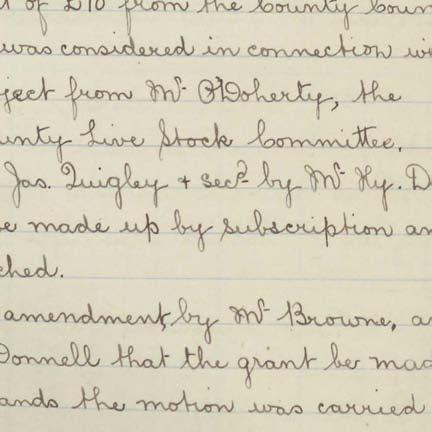 of £10 from the County Coun
was considered in connection wi
ject from Mr. O'Doherty, the
unty Live Stock Committee.
Jas. Quigley + secd. by Mr. Hy. D
e made up by subscription an
ched.
amendment, by Mr. Browne, a
Donnell that the grant be mad
ands the motion was carried